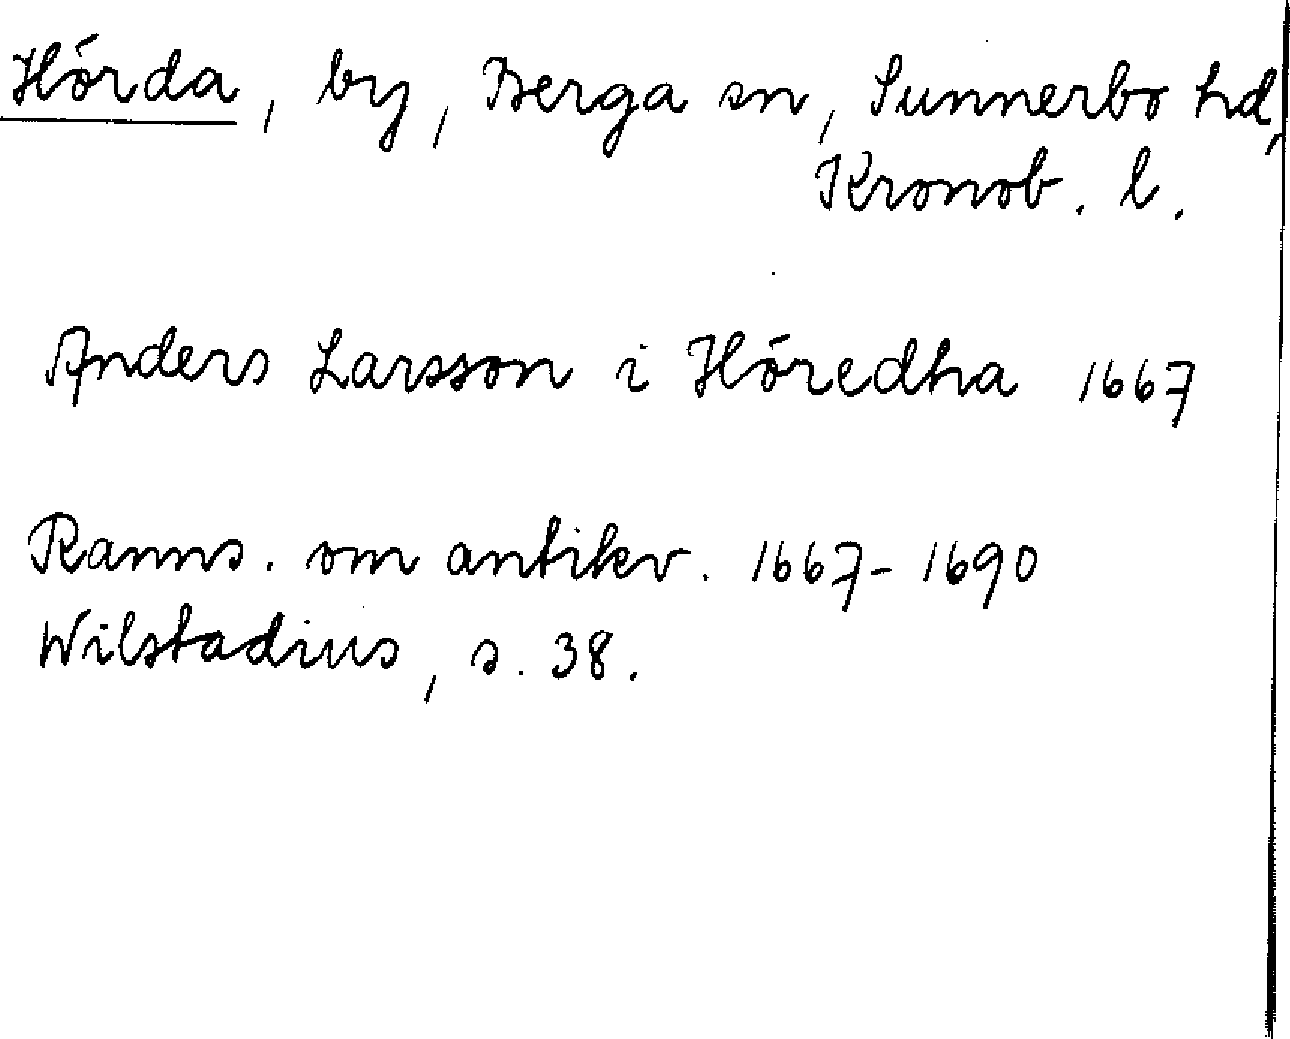 Hörda, by, Berga sn, Sunnerbo hd,
Kronob. l.
Anders Larsson i Höredha 1667
Ranns. om antikv. 1667-1690
Wilstadius, s. 38.